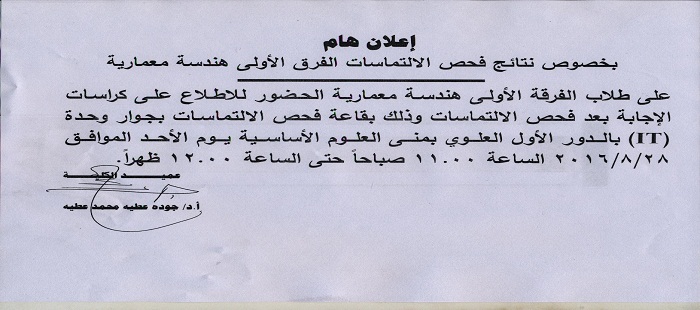 إعلان هام
بخصوص نتائج فحص الالتماسات الفرق الأولى هندسة معمارية
على طلاب الفرقة الأولى هندسة معمارية الحضور للاطلاع على كراسات
الإجابة بعد فحص الالتماسات وذلك بقاعة فحص الالتماسات بجوار وحدة
(IT) بالدور الأول العلوي بمنى العلوم الأساسية يوم الأحد الموافق
٢٠١٦/٨/٢٨ الساعة ١١.٠٠ صباحاً حتى الساعة ١٢.٠٠ ظهراً.
عميد الكلية
أ.د/ جوده عطيه محمد عطيه